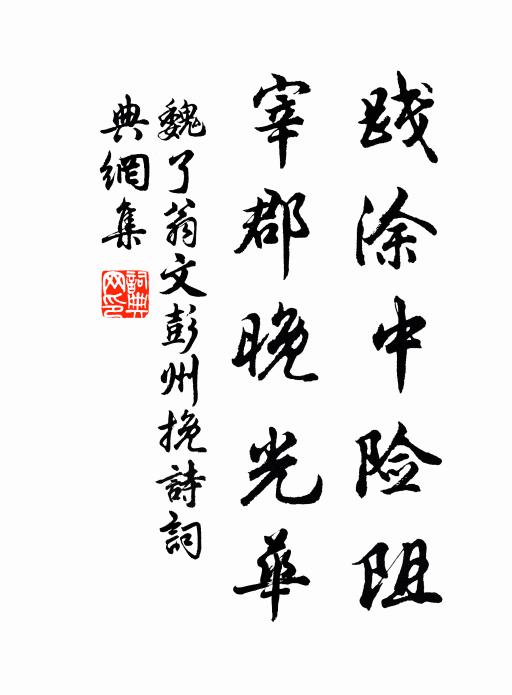 践涂中险阻
宰郡晚光華
魏了翁文彭州挽詩詞
典網集
詞典网印